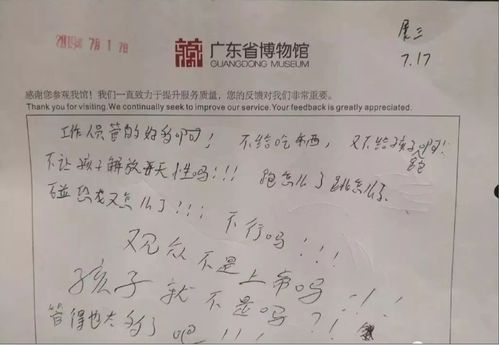 2019年7月17日
展三
7.17
广东省博物馆
GUANGDONG MUSEUM
感谢您参观我馆！我们一直致力于提升服务质量，您的反馈对我们非常重要。
Thank you for visiting. We continually seek to improve our service. Your feedback is greatly appreciated.
工作人员管的好多啊！ 不给吃东西， 又不给孩子跑
不让孩子解放天性吗！！！ 跑怎么了跳怎么了
碰恐龙又怎么了！！！
不行吗！！！
观众不是上帝吗！！！
孩子就不是吗？！！
管得也太多了吧！！！